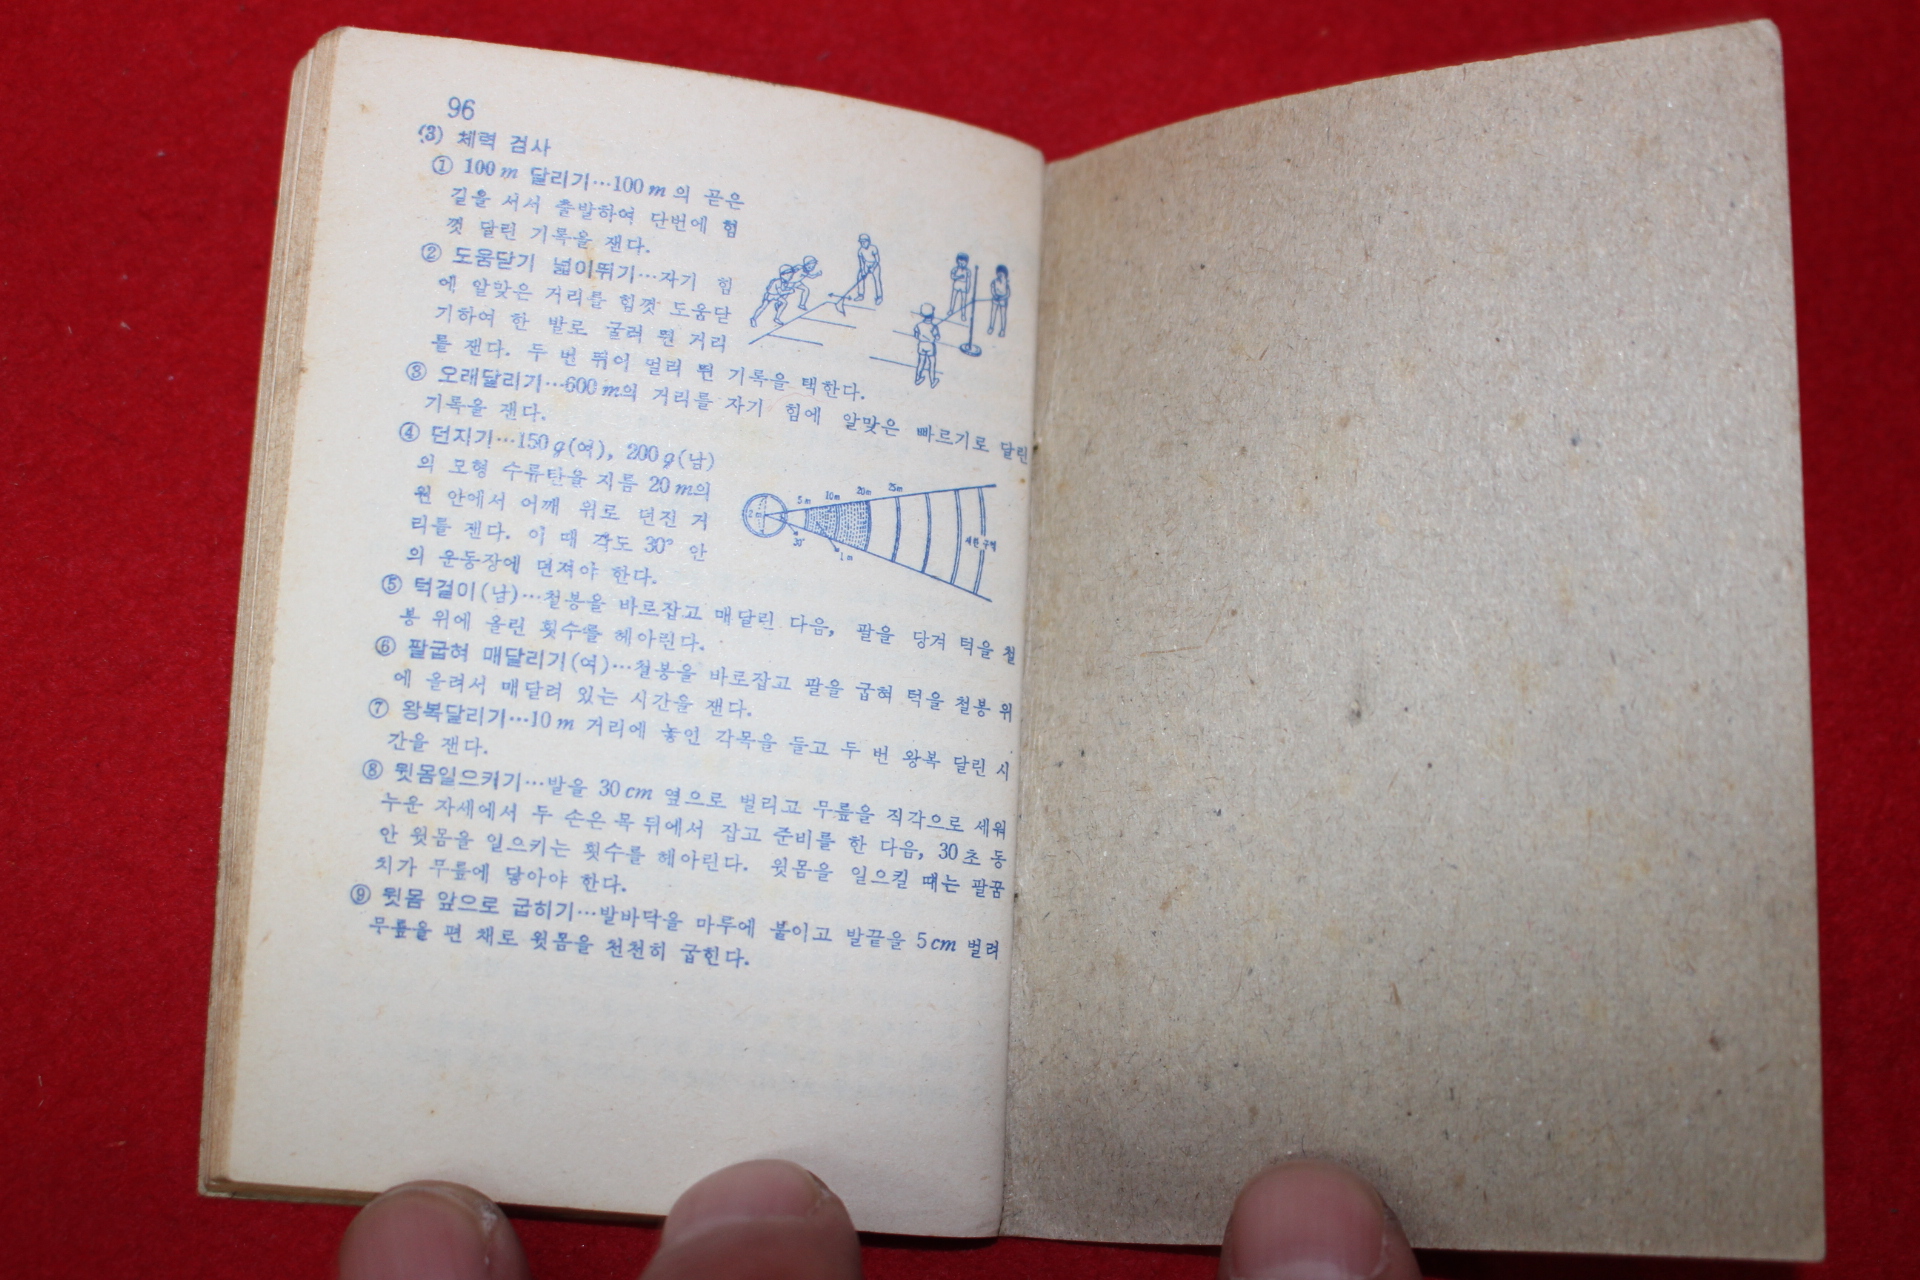 96
(3) 체력 검사
① 100m 달리기…100m의 곧은
길을 서서 출발하여 단번에 힘
껏 달린 기록을 잰다.
② 도움닫기 넓이뛰기…자기 힘
에 알맞은 거리를 힘껏 도움닫
기하여 한 발로 굴러 뛴 거리
를 잰다. 두 번 뛰어 멀리 뛴 기록을 택한다.
③ 오래달리기…600m의 거리를 자기 힘에 알맞은 빠르기로 달린
기록을 잰다.
④ 던지기…150g(여), 200g(남)
의 모형 수류탄을 지름 20m의
원 안에서 어깨 위로 던진 거
리를 잰다. 이 때 각도 30° 안
의 운동장에 던져야 한다.
5m 10m 20m 25m
2m
30°
1m
⑤ 턱걸이(남)…철봉을 바로잡고 매달린 다음, 팔을 당겨 턱을 철
봉 위에 올린 횟수를 헤아린다.
⑥ 팔굽혀 매달리기(여)…철봉을 바로잡고 팔을 굽혀 턱을 철봉 위
에 올려서 매달려 있는 시간을 잰다.
⑦ 왕복달리기…10m 거리에 놓인 각목을 들고 두 번 왕복 달린 시
간을 잰다.
⑧ 윗몸일으키기…발을 30cm 옆으로 벌리고 무릎을 직각으로 세워
누운 자세에서 두 손은 목 뒤에서 잡고 준비를 한 다음, 30초 동
안 윗몸을 일으키는 횟수를 헤아린다. 윗몸을 일으킬 때는 팔꿈
치가 무릎에 닿아야 한다.
⑨ 윗몸 앞으로 굽히기…발바닥을 마루에 붙이고 발끝을 5cm 벌려
무릎을 편 채로 윗몸을 천천히 굽힌다.